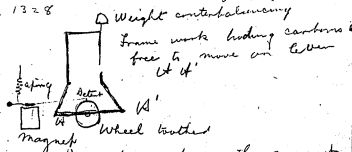 1328
Weight counterbalancing
Frame work holding carbons is
free to move on lever
A A'
spring
Detent
A'
A
Wheel toothed
Magnet